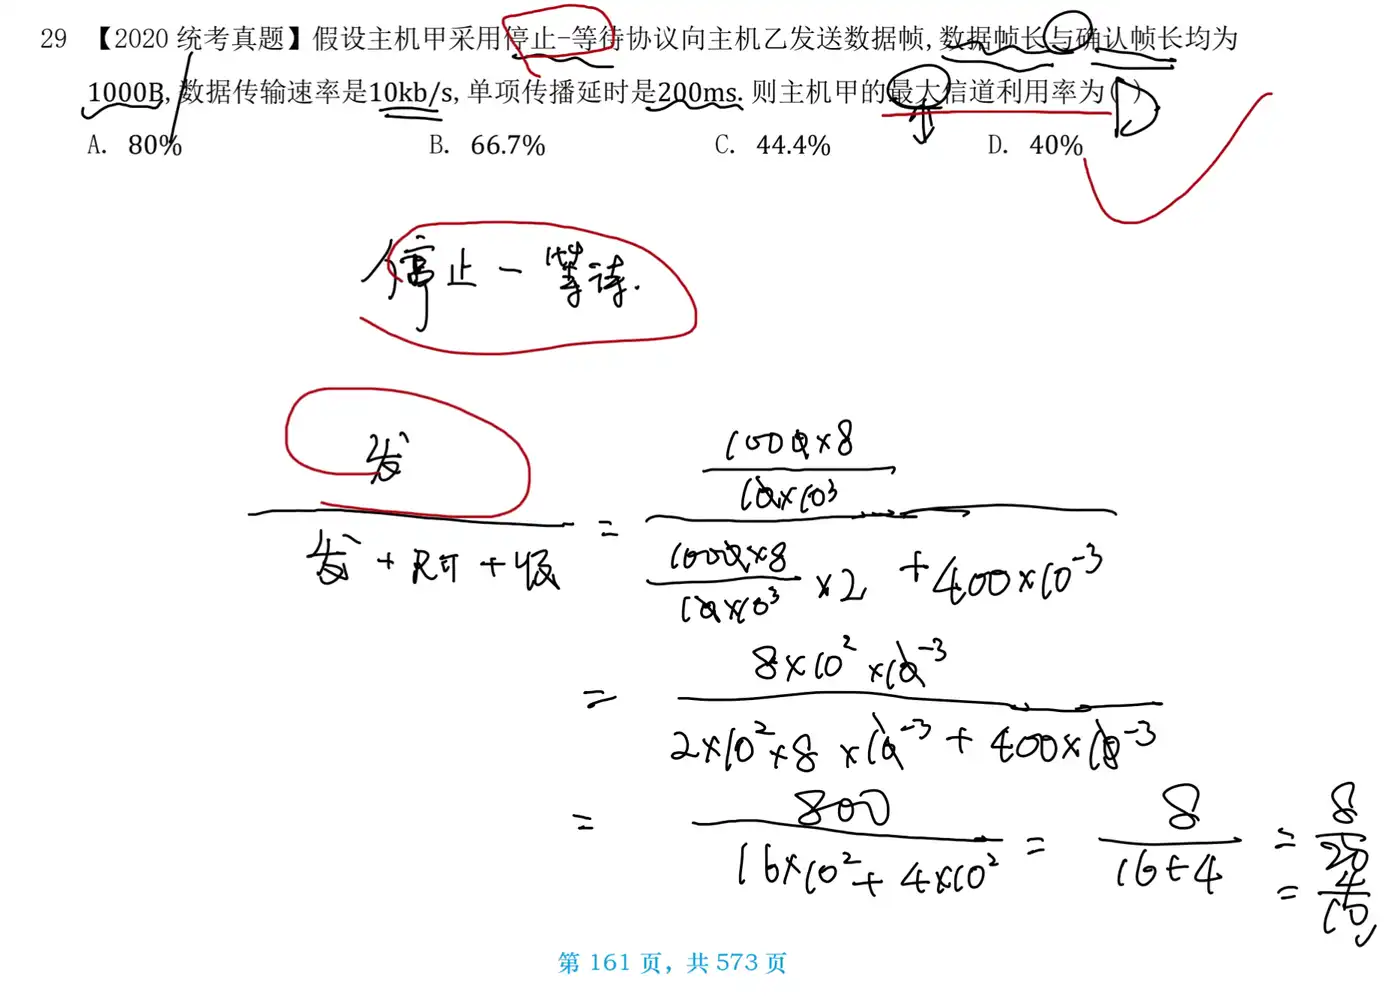 29 【2020 统考真题】假设主机甲采用停止-等待协议向主机乙发送数据帧,数据帧长与确认帧长均为
1000B,数据传输速率是10kb/s,单项传播延时是200ms.则主机甲的最大信道利用率为( )
D
A. 80% B. 66.7% C. 44.4% D. 40%
停止-等待.
发
发 + RTT + 收
=
1000×8
10×10³
1000×8
10×10³
×2 + 400×10⁻³
=
8×10²×10⁻³
2×10²×8×10⁻³ + 400×10⁻³
=
800
16×10²+4×10²
=
8
16+4
=
8
20
=
4
10
第 161 页，共 573 页